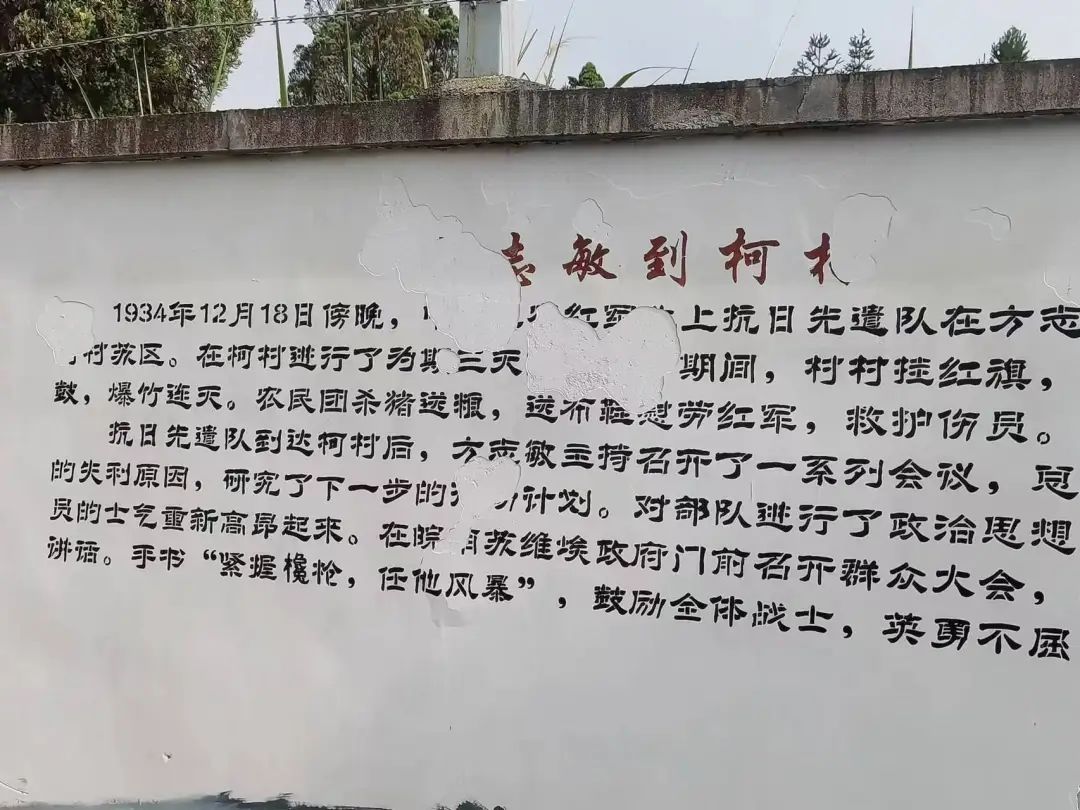 志敏到柯
1934年12月18日傍晚，红军 上抗日先遣队在方志
村苏区。在柯村进行了为期三天 期间，村村挂红旗，
鼓，爆竹连天。农民团杀猪送粮，送布鞋慰劳红军，救护伤员。
抗日先遣队到达柯村后，方志敏主持召开了一系列会议，总
的失利原因，研究了下一步的 计划。对部队进行了政治思想
员的士气重新高昂起来。在皖 苏维埃政府门前召开群众大会，
讲话。手书“紧握橇枪，任他风暴”，鼓励全体战士，英勇不屈